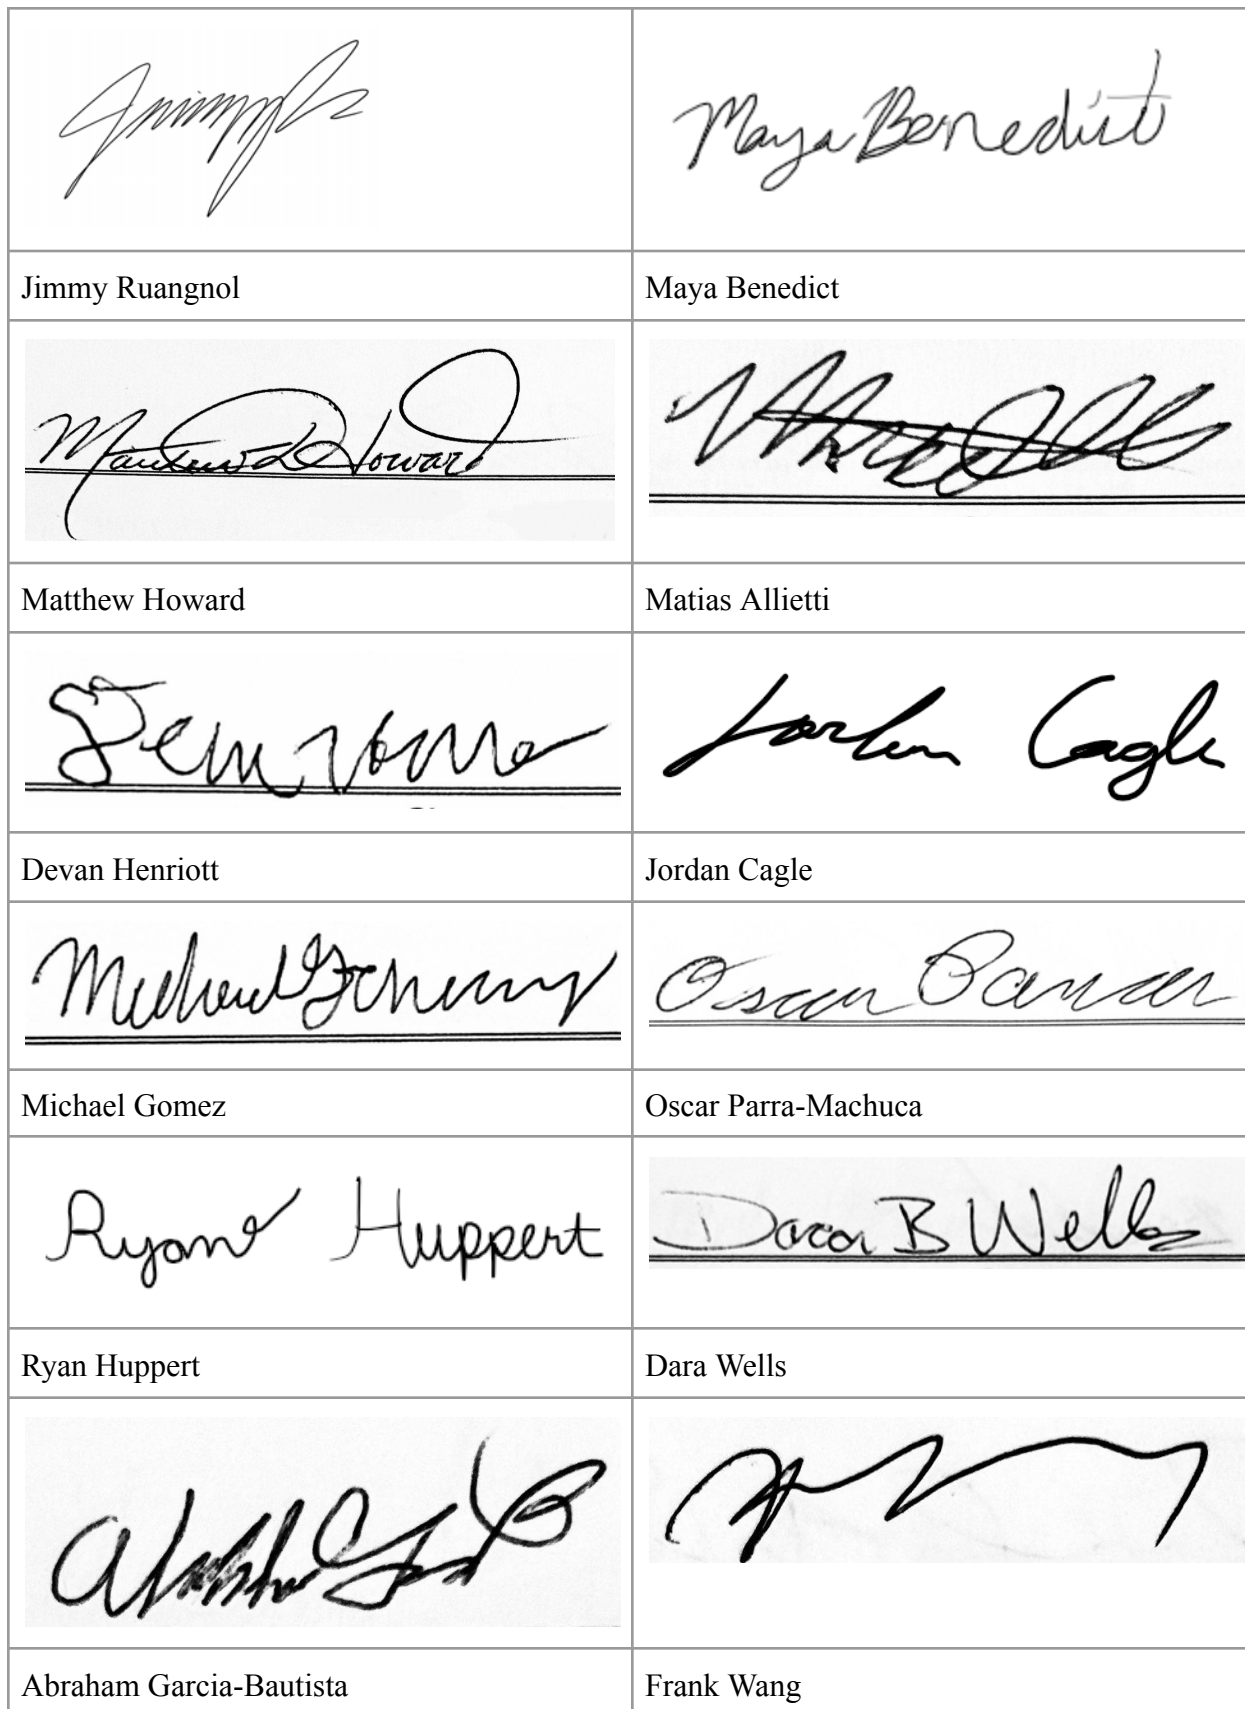 Maya Benedict
Jimmy Ruangnol
Maya Benedict
Matthew Howard
Matthew Howard
Matias Allietti
Jordan Cagle
Devan Henriott
Jordan Cagle
Michael
Oscar
Michael Gomez
Oscar Parra-Machuca
Ryan Huppert
Dara B Wells
Ryan Huppert
Dara Wells
Abraham Garcia-Bautista
Frank Wang